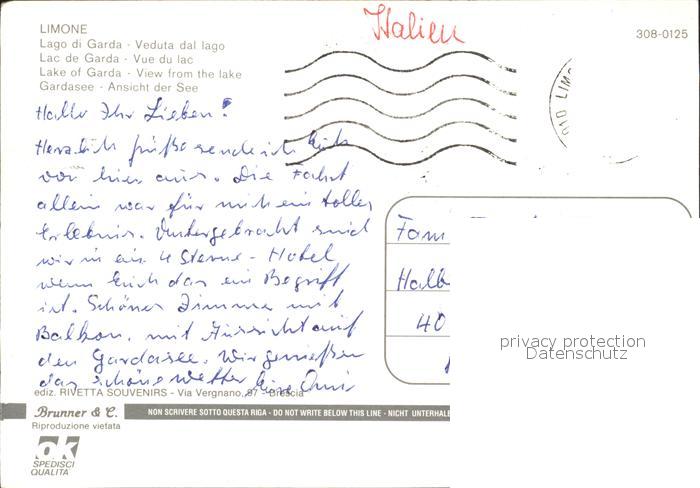 Italien
LIMONE
308-0125
Lago di Garda - Veduta dal lago
Lac de Garda - Vue du lac
Lake of Garda - View from the lake
Gardasee - Ansicht der See
LIMO
Hallo Ihr Lieben!
Herzlich Grüße sende ich Euch
von hier aus. Die Fahrt
allein war für mich ein tolles
Erlebnis. Untergebracht sind
wir in ein 4 Sterne - Hotel
wenn Euch das ein Begriff
ist. Schönes Zimmer mit
Balkon, mit Aussicht auf
den Gardasee. Wir genießen
das schöne Wetter Eure
Fam
Halb
40
privacy protection
Datenschutz
ediz. RIVETTA SOUVENIRS - Via Vergnano, 97 - Brescia
Brunner & C.
NON SCRIVERE SOTTO QUESTA RIGA - DO NOT WRITE BELOW THIS LINE - NICHT UNTERHALB
Riproduzione vietata
ok
SPEDISCI
QUALITÀ